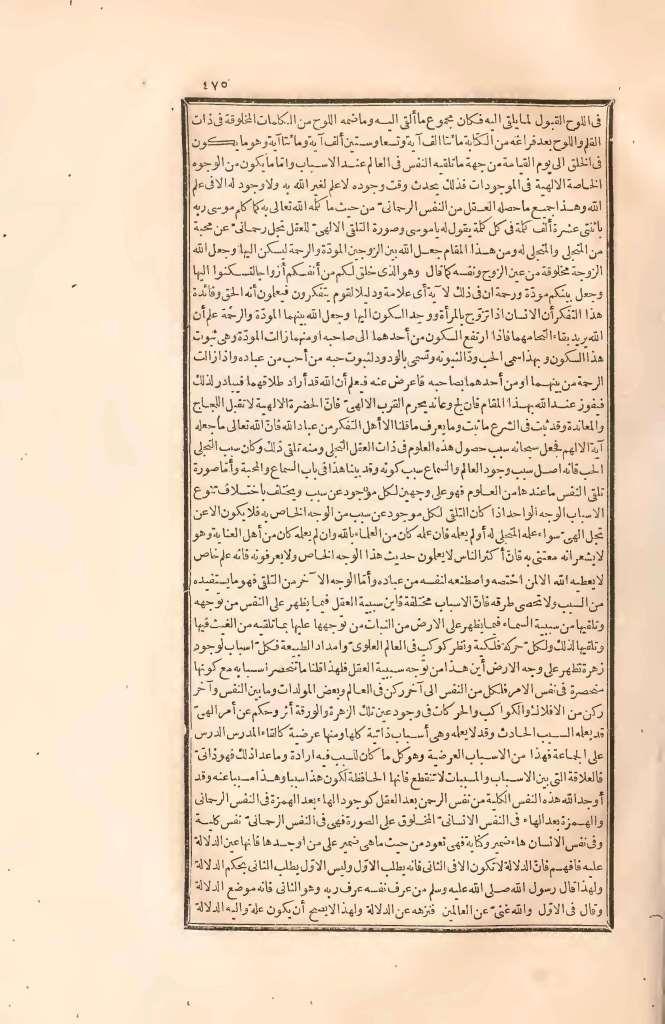 ٤٧٥
فى اللوح القبول لما يلقى اليه فكان مجموع ما ألقى اليه وما ضمه اللوح من الكلمات المخلوقة فى ذات
القلم واللوح بعد فراغه من الكتابة مائتا ألف آية وتسعا وستين ألف آية ومائتا آية وهو ما يكون
فى الخلق الى يوم القيامة من جهة ما تلقيه النفس فى العالم عند الاسباب وأما ما يكون من الوجوه
الخاصة الالهية فى الموجودات فذلك يحدث وقت وجوده لا علم لغير الله به ولا وجود له الا فى علم
الله وهذا جميع ما حصله العقل من النفس الرحمانى من حيث ما كلمه الله تعالى به كما كلم موسى ربه
باثنتى عشرة ألف كلمة فى كل كلمة يقول له يا موسى وصورة التلقى الالهى للعقل تجل رحمانى عن محبة
من المتجلى والمتجلى له ومن هذا المقام جعل الله بين الزوجين المودّة والرحمة ليسكن اليها وجعل الله
الزوجة مخلوقة من عين الزوج ونفسه كما قال وهو الذى خلق لكم من أنفسكم أزواجا لتسكنوا اليها
وجعل بينكم مودّة ورحمة ان فى ذلك لا آية أى علامة ودليلا لقوم يتفكرون فيعلمون أنه الحق وفائدة
هذا التفكر أن الانسان اذا تزوّج بالمرأة ووجد السكون اليها وجعل الله بينهما المودّة والرحمة علم أن
الله يريد بقاء التحامهما فاذا ارتفع السكون من أحدهما الى صاحبه أو منهما زالت المودّة وهى ثبوت
هذا السكون وبهذا سمى الحب ودّا لثبوته وتسمى بالودود لثبوت حبه من أحب من عباده واذا زالت
الرحمة من بينهما او من أحدهما بصاحبه فاعرض عنه فيعلم أن الله قد أراد طلاقهما فيبادر لذلك
فيفوز عند الله بهذا المقام فان لج وعاند يحرم القرب الالهى فان الحضرة الالهية لا تقبل اللجاج
والمعاندة وقد ثبت فى الشرع ما ثبت وما يعرف ما قلنا الا أهل التفكر من عباد الله فان الله تعالى ما جعله
آية الا لهم فجعل سبحانه سبب حصول هذه العلوم فى ذات العقل التجلى ومنه تلقى ذلك وكان سبب التجلى
الحب فانه اصل سبب وجود العالم والسماع سبب كونه وقد بينا هذا فى باب السماع والمحبة وأما صورة
تلقى النفس ما عندها من العلوم فهو على وجهين لكل موجود عن سبب ويختلف باختلاف تنوع
الاسباب الوجه الواحد اذا كان التلقى لكل موجود عن سبب من الوجه الخاص به فلا يكون الا عن
تجل الهى سواء علمه المتجلى له أو لم يعلمه فان علمه كان من العلماء بالله وان لم يعلمه كان من أهل العناية وهو
لا يشعر انه معتنى به فان أكثر الناس لا يعلمون حديث هذا الوجه الخاص ولا يعرفونه فانه علم خاص
لا يعطيه الله الا لمن اختصه واصطنعه لنفسه من عباده وأما الوجه الا آخر من التلقى فهو ما يستفيده
من السبب ولا تحصى طرقه فان الاسباب مختلفة فاين سببية العقل فيما يظهر على النفس من توجهه
وتلقيها من سببية السماء فيما يظهر على الارض من النبات من توجهها عليها بما تلقيه من الغيث فيها
وتلقيها لذلك ولكل حركة فلكية ونظر كوكب فى العالم العلوى وامداد الطبيعة فكل اسباب لوجود
زهرة تظهر على وجه الارض أين هذا من توجه سببية العقل فلهذا قلنا ما تنحصر أسبابه مع كونها
منحصرة فى نفس الامر فلكل من النفس الى آخر ركن فى العالم وبعض المولدات وما بين النفس وآخر
ركن من الافلاك والكواكب والحركات فى وجود عين تلك الزهرة والورقة أثر وحكم عن أمر الهى
قد يعلمه السبب الحادث وقد لا يعلمه وهى أسباب ذاتية كلها ومنها عرضية كالقاء المدرس الدرس
على الجماعة فهذا من الاسباب العرضية وهو كل ما كان للسبب فيه ارادة وما عدا ذلك فهو ذاتى
فالعلاقة التى بين الاسباب والمسببات لا تنقطع فانها الحافظة لكون هذا سببا وهذا مسببا عنه وقد
أوجد الله هذه النفس الكلية من نفس الرحمن بعد العقل كوجود الهاء بعد الهمزة فى النفس الرحمانى
والهمزة بعد الهاء فى النفس الانسانى المخلوق على الصورة فهى فى النفس الرحمانى نفس كلية
وفى نفس الانسان هاء ضمير وكناية فهى تعود من حيث ما هى ضمير على من أوجدها فانها عين الدلالة
عليه فافهم فان الدلالة لا تكون الا فى الثانى فانه يطلب الاول وليس الاول يطلب الثانى بحكم الدلالة
ولهذا قال رسول الله صلى الله عليه وسلم من عرف نفسه عرف ربه وهو الثانى فانه موضع الدلالة
وقال فى الاول والله غنى عن العالمين فنزهه عن الدلالة ولهذا لا يصح أن يكون علة واليه الدلالة